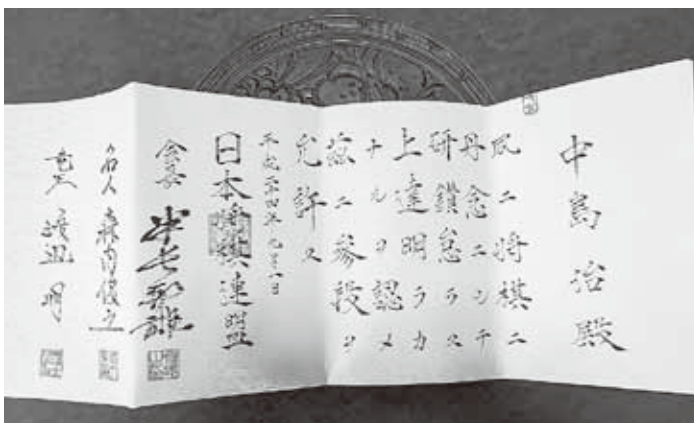 中島治殿
夙ニ将棋ニ
丹念ニシテ
研鑽怠ラス
上達明ラカ
ナルヲ認メ
茲ニ参段ヲ
允許ス
平成二十四年九月一日
日本将棋連盟
会長 米長邦雄
名人 森内俊之
竜王 渡辺明